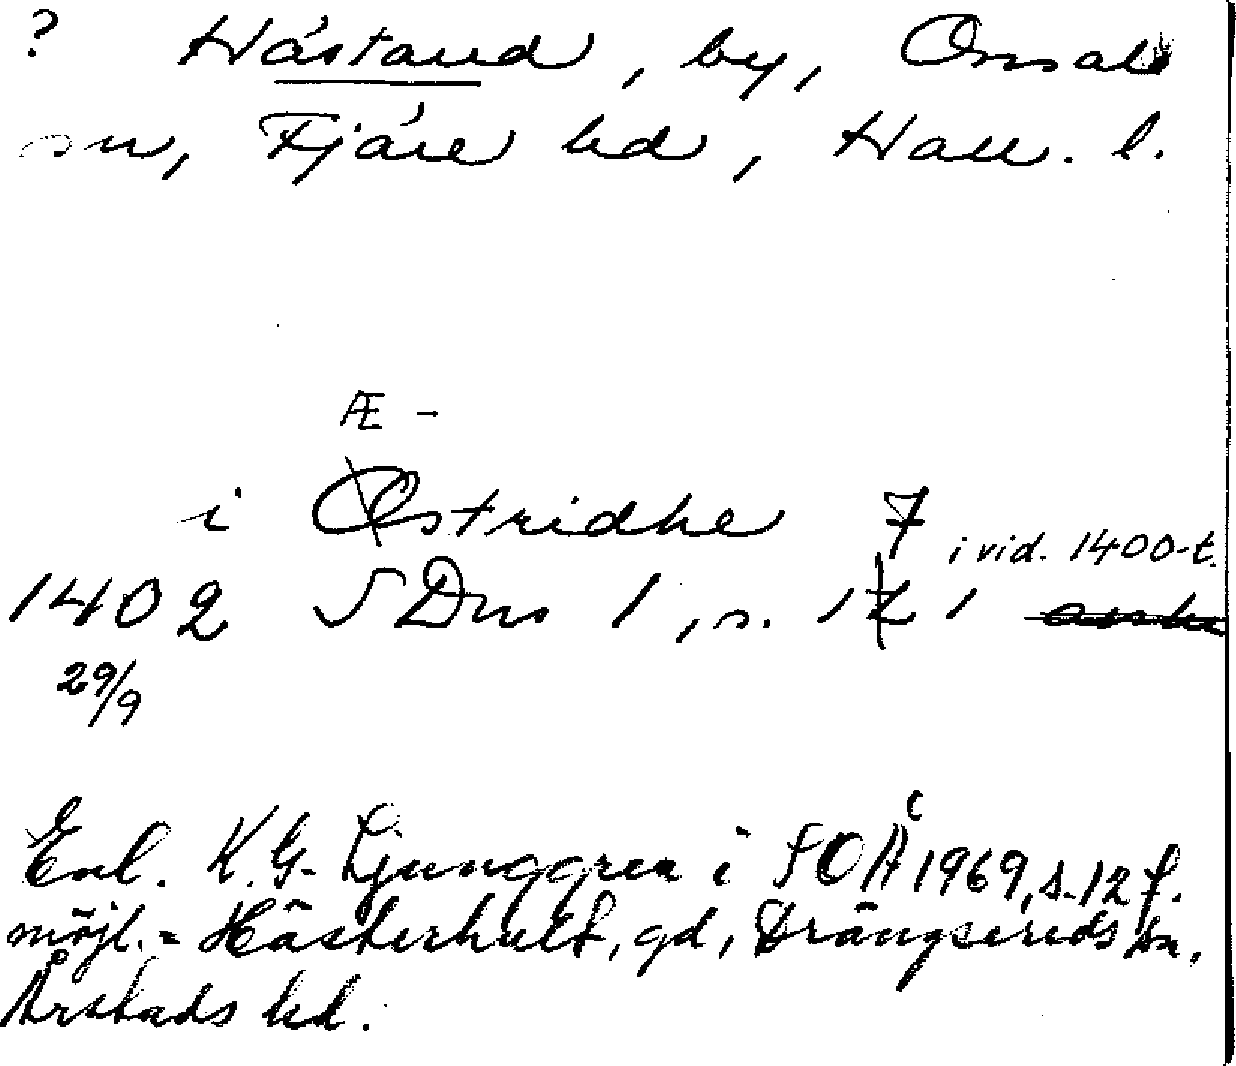 ? Hästaud, by, Onsala
sn, Fjäre hd, Hall. l.
Æ -
i Østridhe
7 i vid. 1400-t.
1402 SDns 1, s. 121
29/9
Enl. K. G. Ljunggren i SOÅ 1969, s. 12 f.
möjl. = Hästerhult, gd, Drängsereds sn,
Årstads hd.